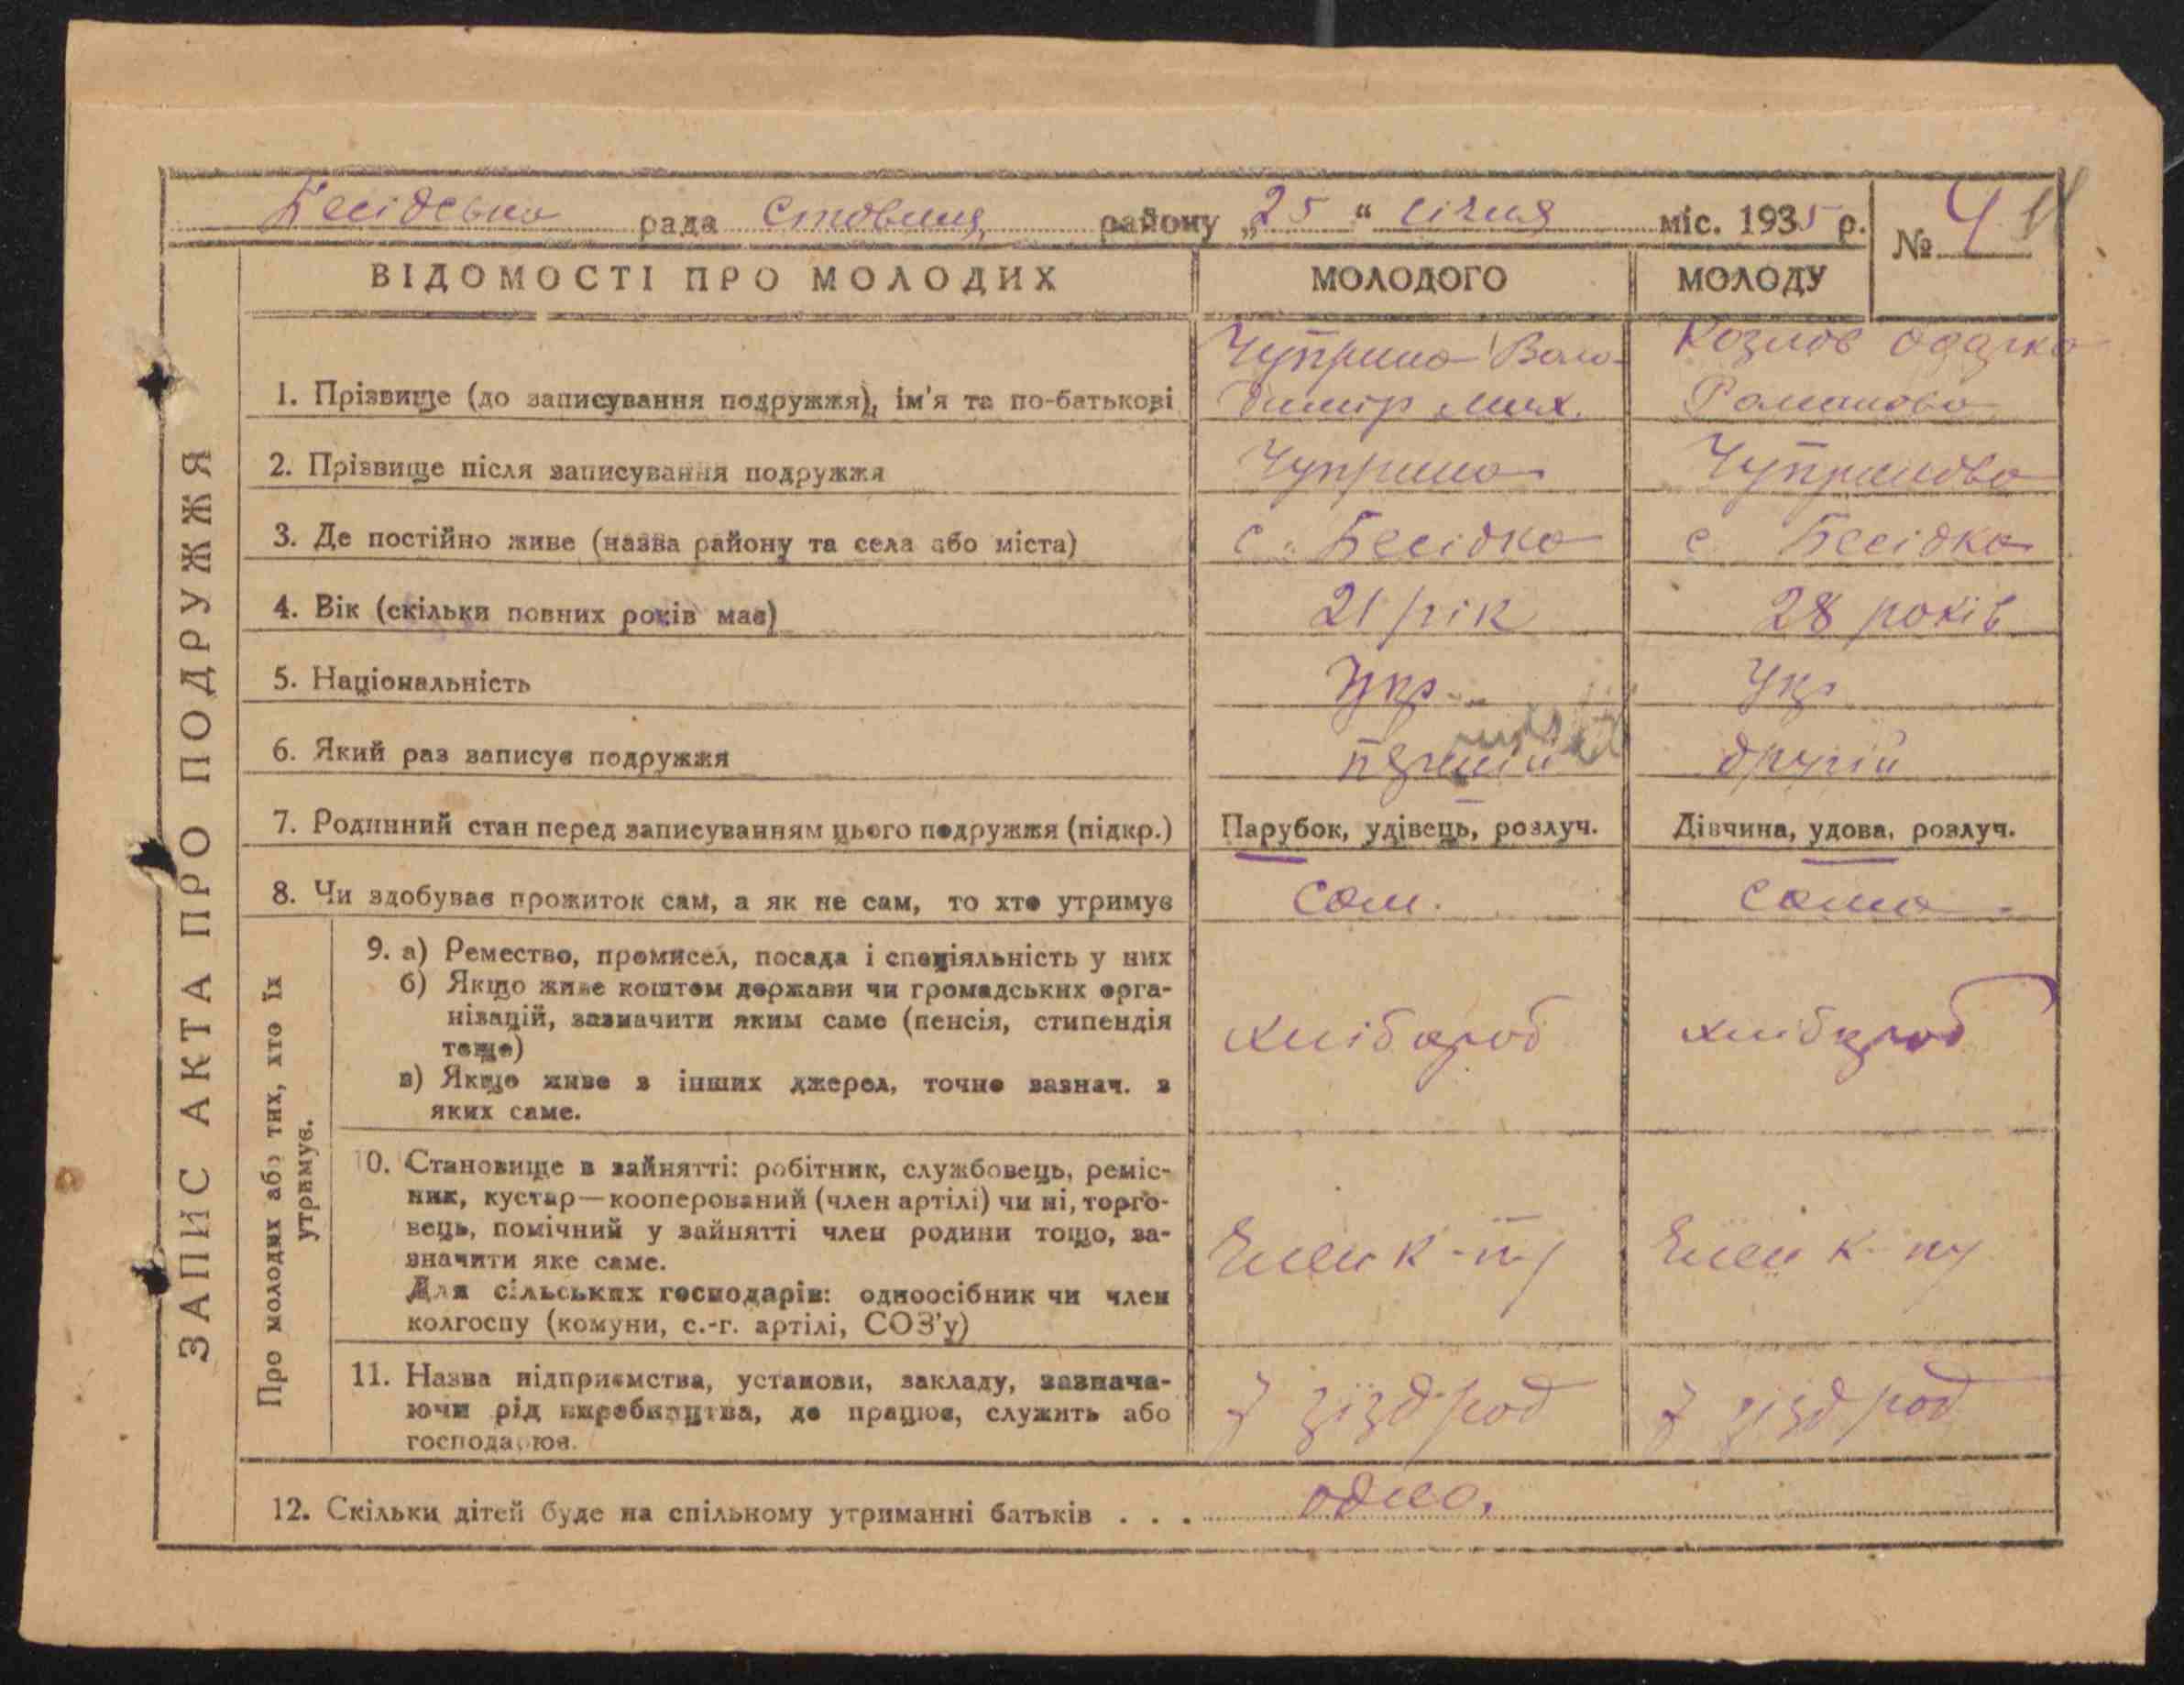 Бесідська рада Ставищ. району „25“ січня міс. 1935 р. № 4
ВІДОМОСТІ ПРО МОЛОДИХ МОЛОДОГО МОЛОДУ
ЗАПИС АКТА ПРО ПОДРУЖЖЯ
1. Прізвище (до записування подружжя), ім'я та по-батькові
Чуприна Воло-
димір Мих.
Козлов Одарка
Романова
2. Прізвище після записування подружжя Чуприна Чупринова
3. Де постійно живе (назва району та села або міста) с. Бесідка с Бесідка
4. Вік (скільки повних років має) 21 рік 28 років
5. Національність Укр. Укр
6. Який раз записує подружжя перший другій
7. Родинний стан перед записуванням цього подружжя (підкр.) Парубок, удівець, розлуч. Дівчина, удова, розлуч.
8. Чи здобуває прожиток сам, а як не сам, то хто утримує сам. сама.
Про молодих або тих, хто їх
утримує.
9. а) Ремество, промисел, посада і спеціяльність у них
б) Якщо живе коштом держави чи громадських орга-
нізацій, зазначити яким саме (пенсія, стипендія
тощо)
в) Якщо живе з інших джерел, точно зазнач. з
яких саме.
хлібороб хлібороб
10. Становище в зайнятті: робітник, службовець, реміс-
ник, кустар—кооперований (член артілі) чи ні, торго-
вець, помічний у зайнятті член родини тощо, за-
значити яке саме.
Для сільських господарів: одноосібник чи член
колгоспу (комуни, с.-г. артілі, СОЗ'у)
Член к-пу Член к-пу
11. Назва підприємства, установи, закладу, зазнача-
ючи рід виробництва, де працює, служить або
господарює.
7 зїзд рад 7 зїзд рад
12. Скільки дітей буде на спільному утриманні батьків . . . одно.